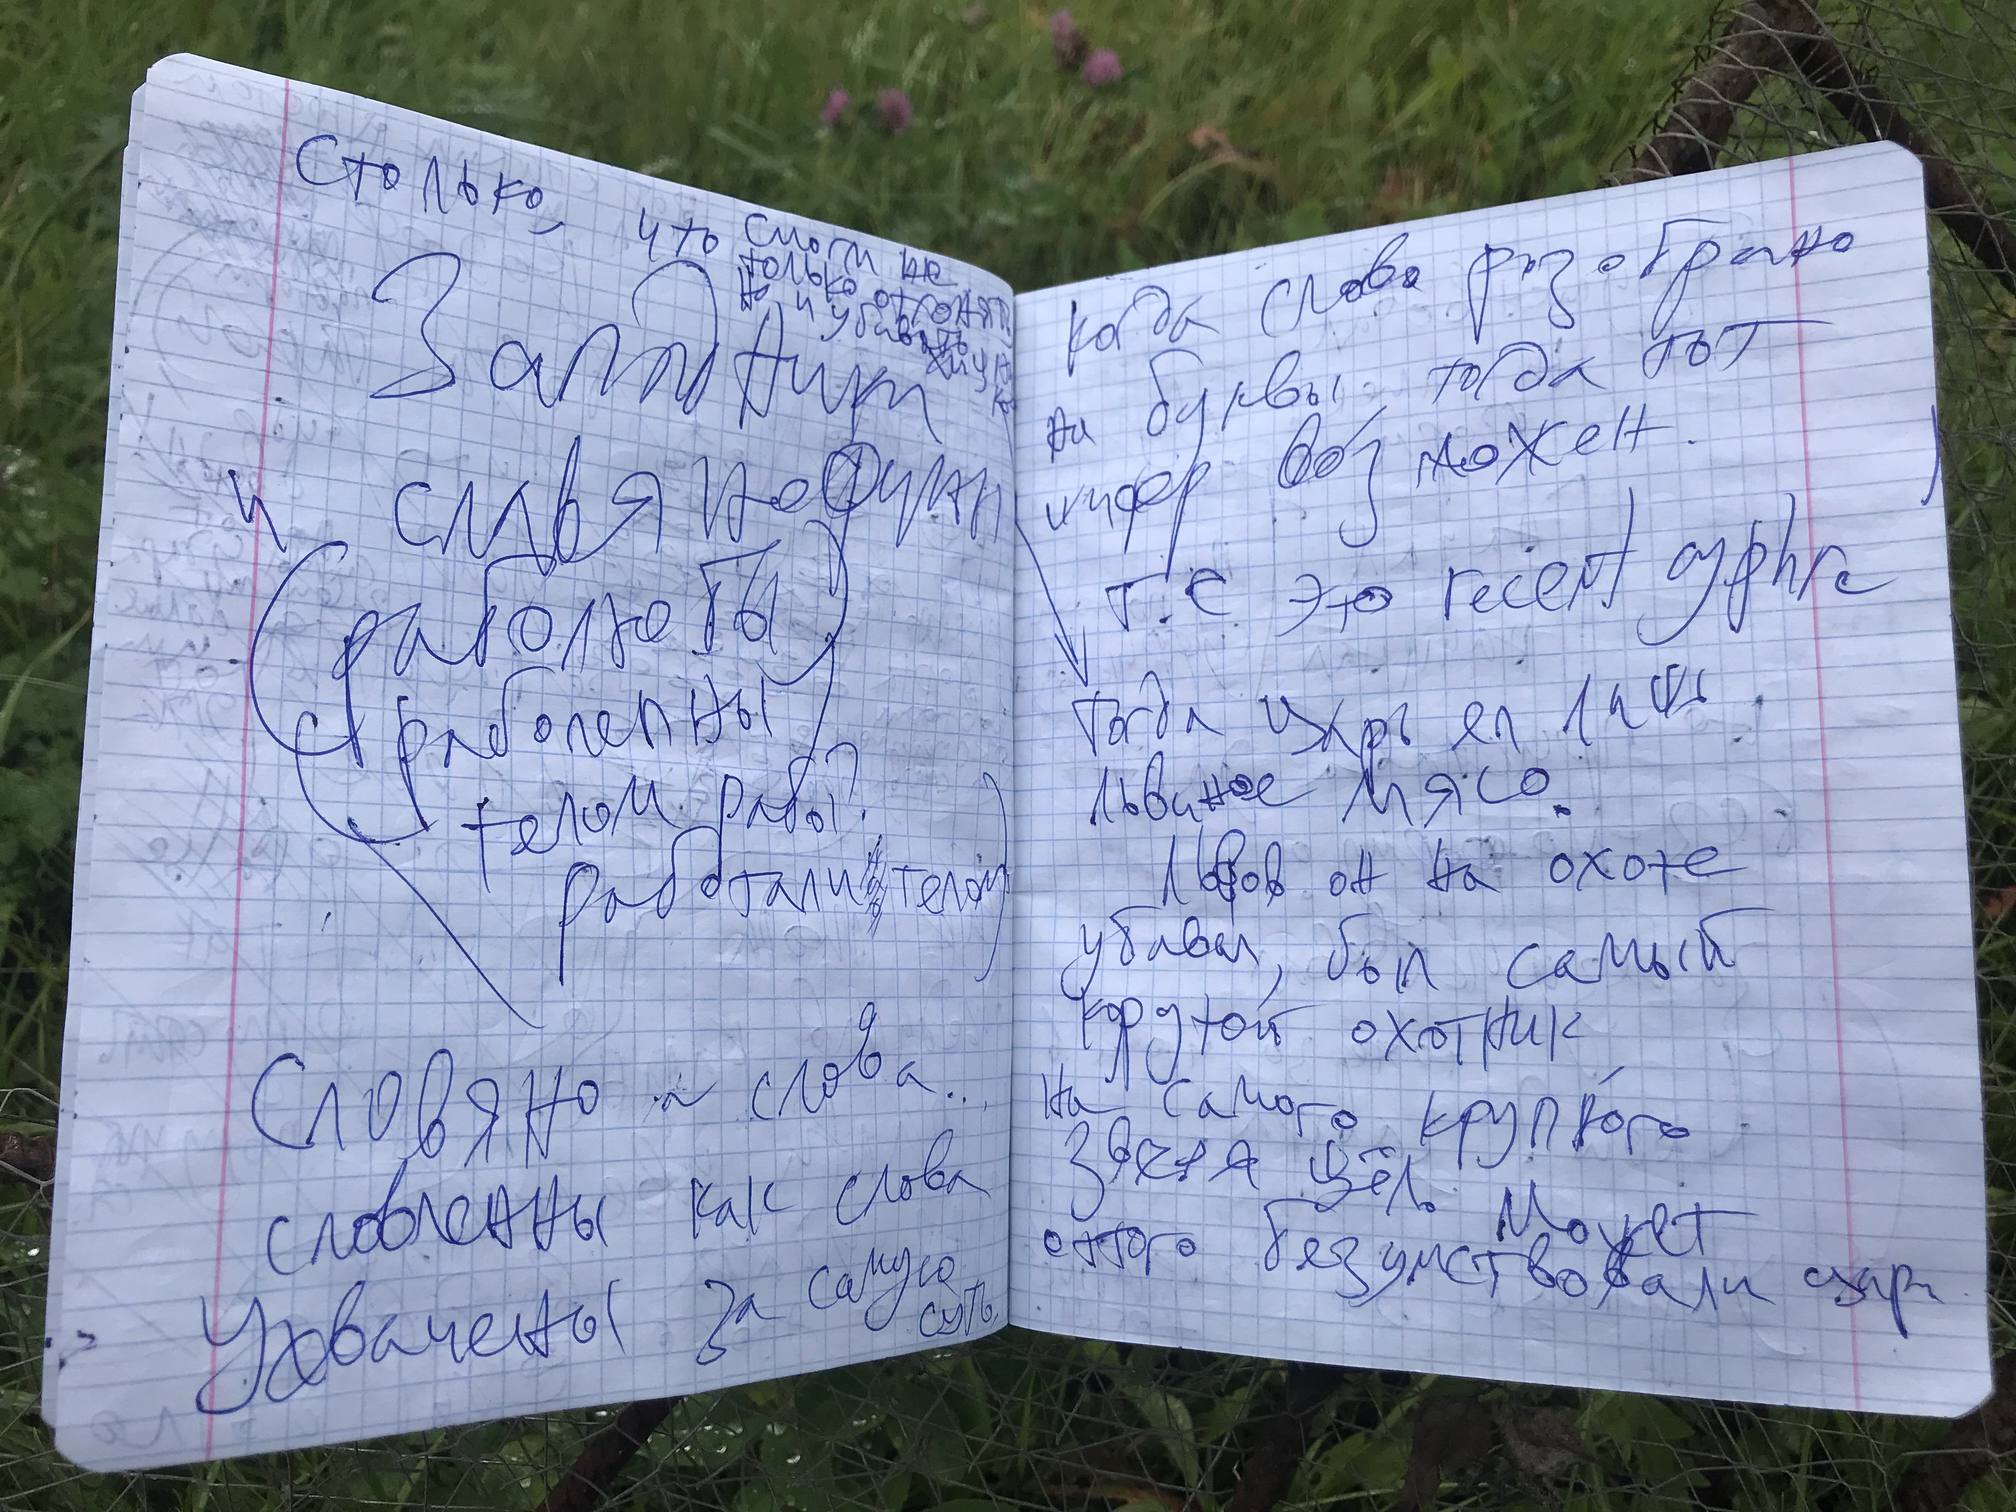 Столько, что смогли не
только отгонять
но и убивать
хищника
Западники
и славянофилы
(работы
раболепны
телом рабы?
работали телом)
Словяно ~ слова...
словленны как слова
Ухвачены за самую
суть.
когда слово разобрано
на буквы тогда тът
цифр возможен.
т.е это recent cyphre
тогда царь ел
львиное мясо.
Львов он на охоте
убивал, был самый
крутой охотник
на самого крупного
зверя цель. Может
оттого безумствовали цари